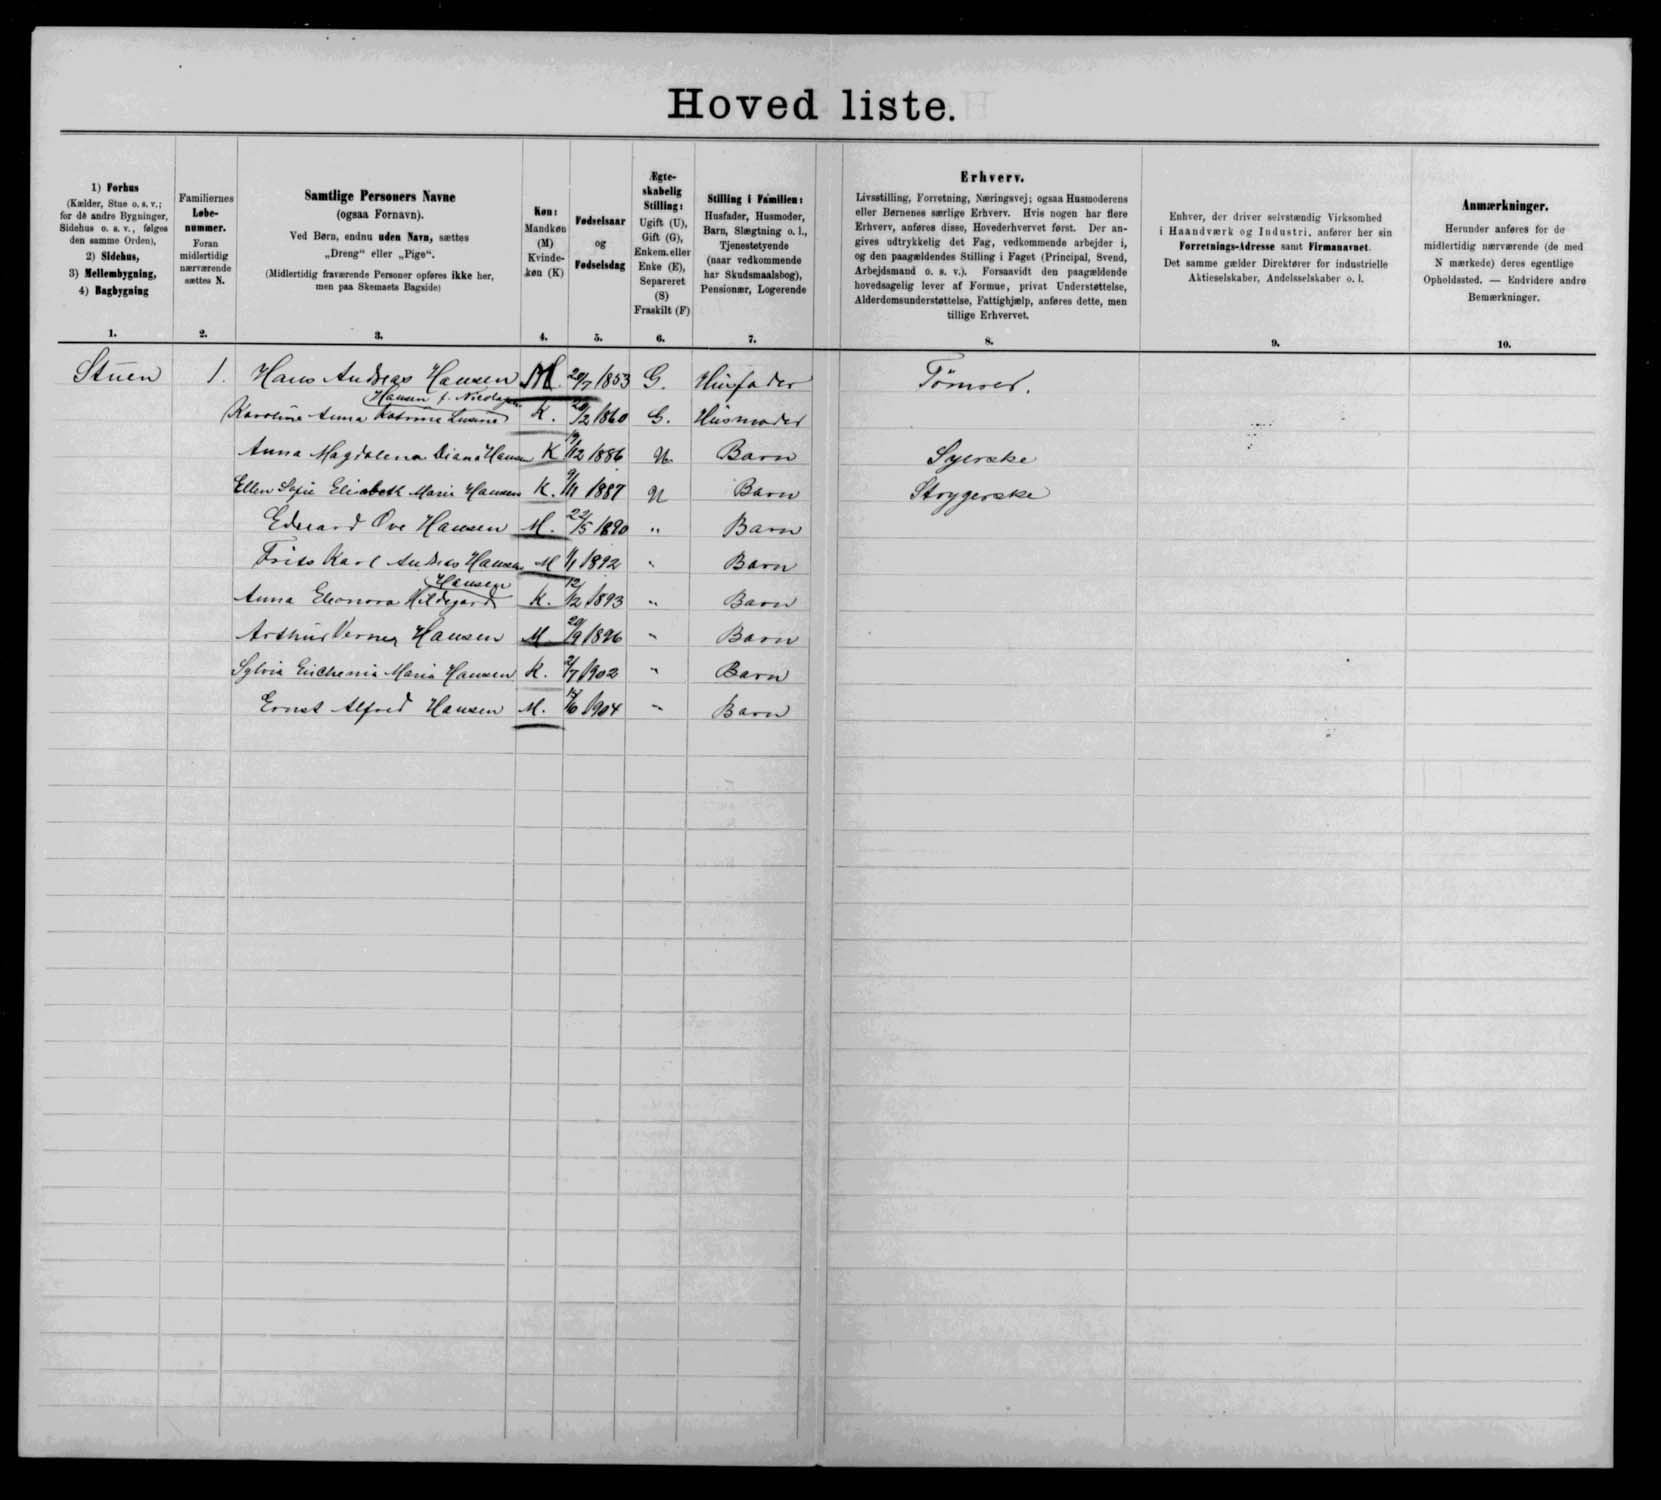 Hoved liste.
1) Forhus
(Kælder, Stue o. s. v.;
for de andre Bygninger,
Sidehus o. s. v., følges
den samme Orden),
2) Sidehus,
3) Mellembygning,
4) Bagbygning
1.
Familiernes
Løbe-
nummer.
Foran
midlertidig
nærværende
sættes N.
2.
Samtlige Personers Navne
(ogsaa Fornavn).
Ved Børn, endnu uden Navn, sættes
„Dreng“ eller „Pige“.
(Midlertidig fraværende Personer opføres ikke her,
men paa Skemaets Bagside)
3.
Køn:
Mandkøn
(M)
Kvinde-
køn (K)
4.
Fødselsaar
og
Fødselsdag
5.
Ægte-
skabelig
Stilling:
Ugift (U),
Gift (G),
Enkem. eller
Enke (E),
Separeret
(S)
Fraskilt (F)
6.
Stilling i Familien:
Husfader, Husmoder,
Barn, Slægtning o. l.,
Tjenestetyende
(naar vedkommende
har Skudsmaalsbog),
Pensionær, Logerende
7.
Erhverv.
Livsstilling, Forretning, Næringsvej; ogsaa Husmoderens
eller Børnenes særlige Erhverv. Hvis nogen har flere
Erhverv, anføres disse, Hovederhvervet først. Der an-
gives udtrykkelig det Fag, vedkommende arbejder i,
og den paagældendes Stilling i Faget (Principal, Svend,
Arbejdsmand o. s. v.). Forsaavidt den paagældende
hovedsagelig lever af Formue, privat Understøttelse,
Alderdomsunderstøttelse, Fattighjælp, anføres dette, men
tillige Erhvervet.
8.
Enhver, der driver selvstændig Virksomhed
i Haandværk og Industri, anfører her sin
Forretnings-Adresse samt Firmanavnet.
Det samme gælder Direktører for industrielle
Aktieselskaber, Andelsselskaber o. l.
9.
Anmærkninger.
Herunder anføres for de
midlertidig nærværende (de med
N mærkede) deres egentlige
Opholdssted. — Endvidere andre
Bemærkninger.
10.
Stuen 1. Hans Andreas Hansen M. 20/7 1853 G. Husfader Tömrer.
Hansen f.
Karoline Anna Katrine K. /2 1860 G. Husmoder
Anna Magdalena Diana Hansen K 19/12 1886 U. Barn Syerske
Ellen Sofie Elisabeth Marie Hansen K. 9/11 1887 U Barn Strygerske
Edvard Ove Hansen M. 22/5 1890 " Barn
Frits Karl Andreas Hansen M 1/1 1892 " Barn
Hansen
Anna Eleonora Hildegard K. 12/2 1893 " Barn
Arthur Verner Hansen M 20/9 1896 " Barn
Sylvia Maria Hansen K. 2/7 1902 " Barn
Ernst Alfred Hansen M. 1904 " Barn